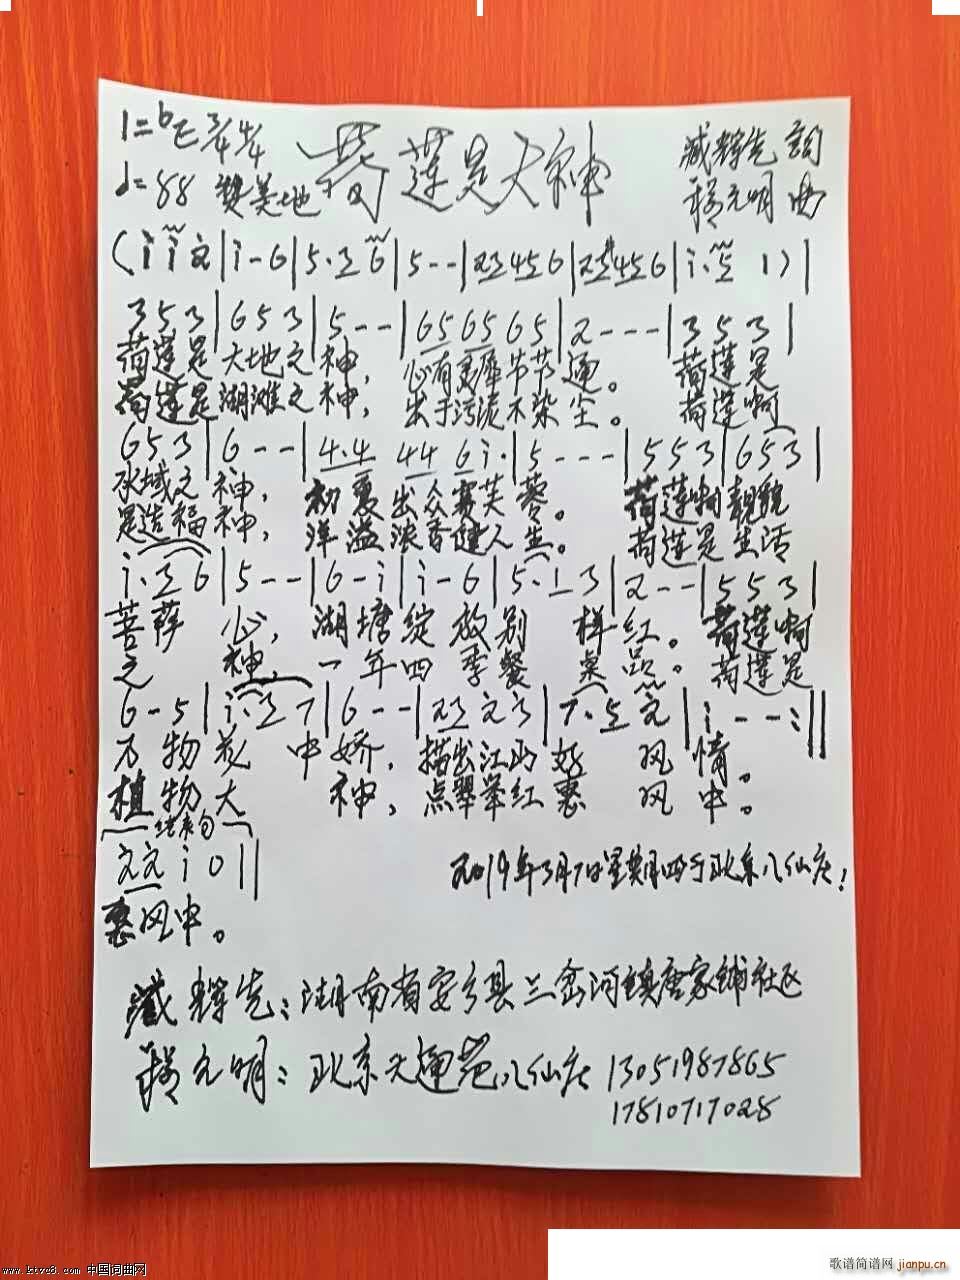 1=bE 3/4 4/4 荷莲是大神 臧辉先 词
♩=88 赞美地 程元明 曲
(i i 2|i-6|5·3 6|5--|23456|23#456|i·5 1)|
353|653|5--|656565|2---|353|
荷莲是大地之神，心有灵犀节节通。荷莲是
荷莲是湖滩之神，出于污泥不染尘。荷莲啊
653|6--|4·4 44 6i·|5---|553|653|
水域之神，初夏出众赛芙蓉。荷莲啊靓貌
是造福神，洋溢浓香健人生。荷莲是生活
i·36|5--|6-i|i-6|5·13|2--|553|
菩萨心，湖塘绽放别样红。荷莲啊
之神，一年四季餐桌品。荷莲是
6-5|i·37|6--|2323|7·52|i--:||
万物花中娇，描出江山好风情。
植物大神，点翠举红惠风中。
结束句
22i0||
2019年3月7日星期四于北京八仙庄！
惠风中。
臧辉先：湖南省安乡县三岔河镇唐家铺社区
程元明：北京天通苑八仙庄 13051987865
17810717028
www.ktvc8.com 中国词曲网
歌谱简谱网
jianpu.cn